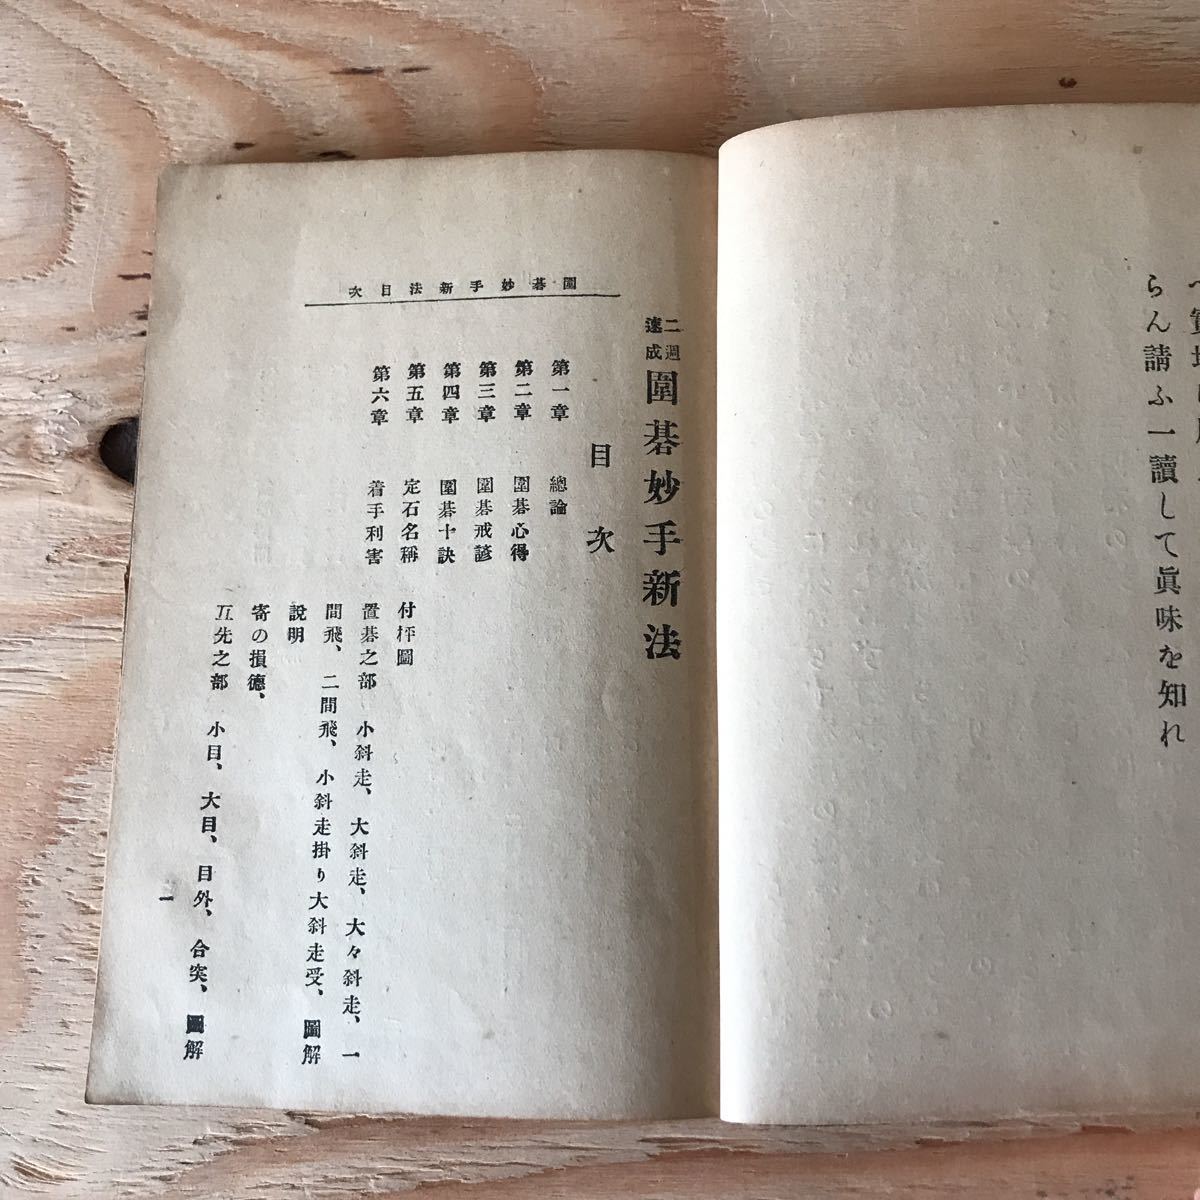 らん請ふ一讀して眞味を知れ
圍碁妙手新法目次
二週速成
圍碁妙手新法
目次
第一章 總論
第二章 圍碁心得
第三章 圍碁戒諺
第四章 圍碁十訣
第五章 定石名稱
第六章 着手利害
付枰圖
置碁之部 小斜走、大斜走、大々斜走、一
間飛、二間飛、小斜走掛り大斜走受、圖解
說明
寄の損德、
互先之部 小目、大目、目外、合突、圖解
一